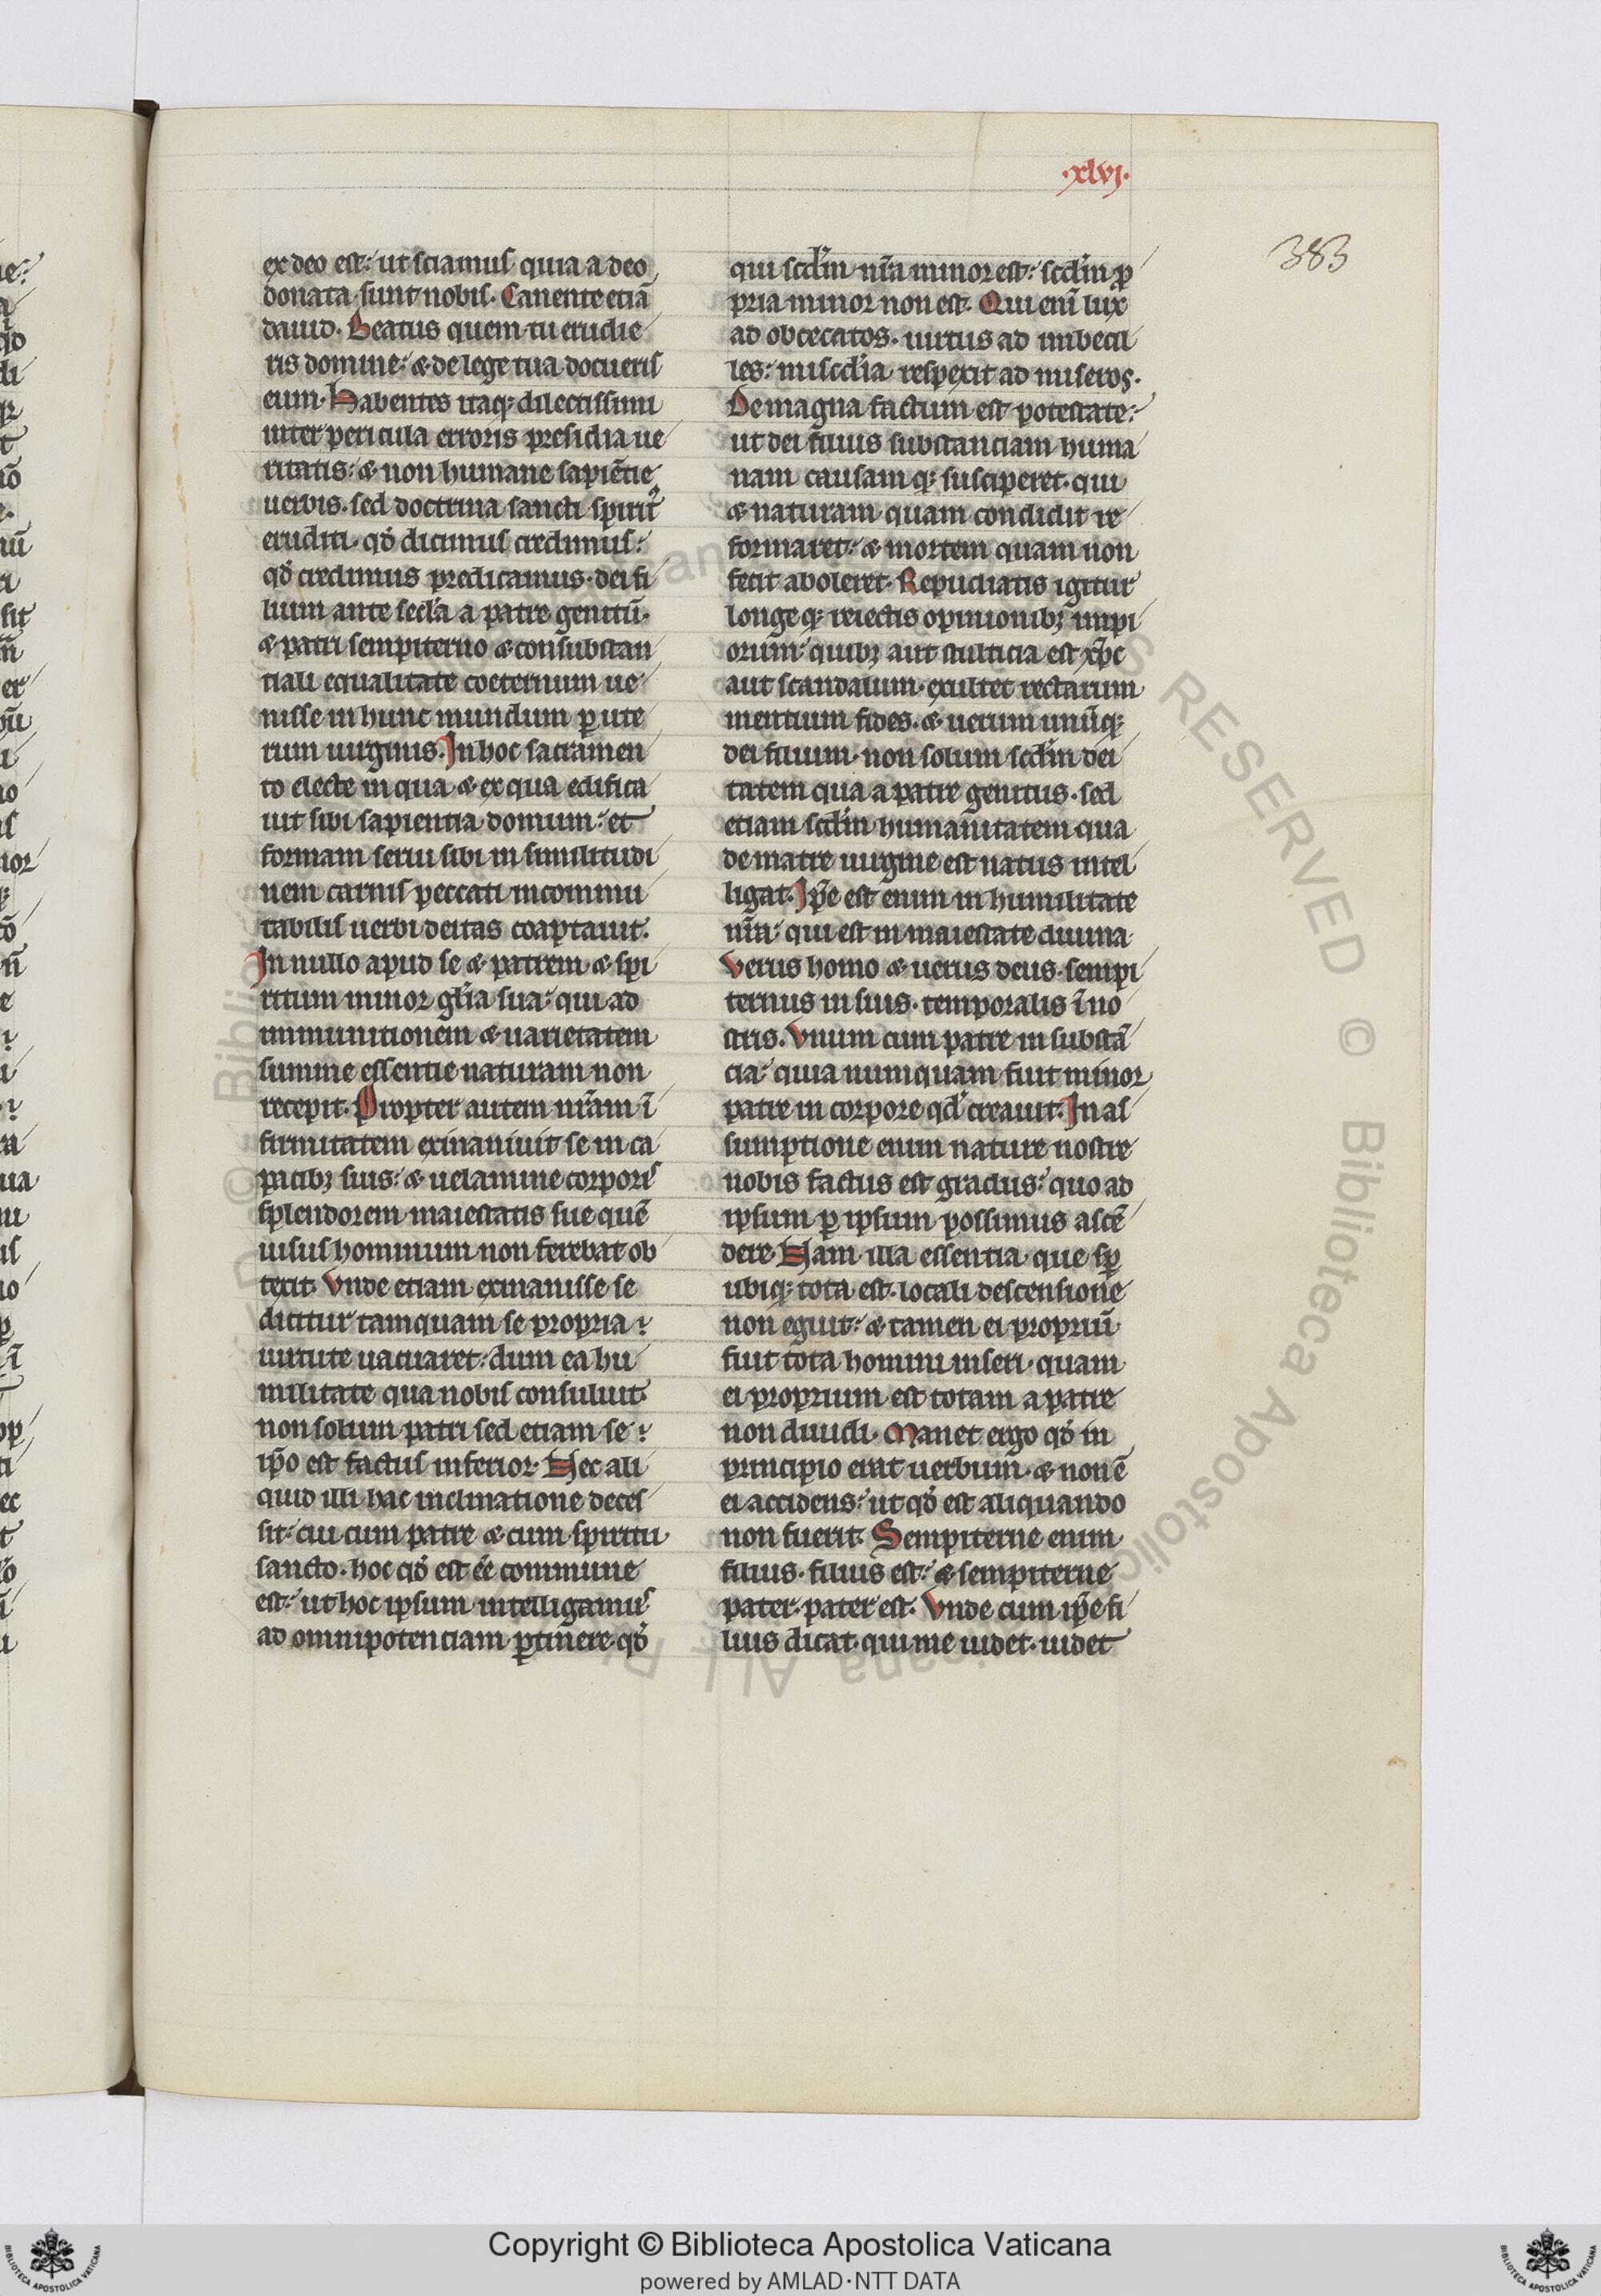 ·xlvj·
383
ex deo est: ut sciamus quia a deo
donata sunt nobis. Canente etiā
dauid. Beatus quem tu erudie
ris domine: & de lege tua docueris
eum. Habentes itaq; dilectissimi
inter pericula erroris presidia ue
ritatis: & non humane sapiētie
uerbis. sed doctrina sancti spirit᾽
eruditi. qd̕ dicimus credimus:
qd̕ credimus predicamus. dei fi
lium ante secl̕a a patre genitū.
& patri sempiterno & consubstan
tiali equalitate coeternum ue
nisse in hunc mundum ꝑ ute
rum uirginis. In hoc sacramen
to electe in qua & ex qua edifica
uit sibi sapientia domum: et
formam serui sibi in similitudi
nem carnis peccati incommu
tabilis uerbi deitas coaptauit.
In nullo apud se & patrem & spi
ritum minor gl̄ia sua: qui ad
imminutionem & uarietatem
summe essentie naturam non
recepit. Propter autem nr̄am ī
firmitatem exinaniuit se in ca
pacibꝫ suis: & uelamine corporis
splendorem maiestatis sue quē
uisus hominum non ferebat ob
texit. Vnde etiam exinanisse se
dicitur tamquam se propria
uirtute uacuaret: dum ea hu
militate qua nobis consuluit
non solum patri sed etiam se
ip̄o est factus inferior. Nec ali
quid illi hac inclinatione deces
sit: cui cum patre & cum spiritu
sancto. hoc qd̕ est eē commune
est: ut hoc ipsum intelligamus
ad omnipotenciam ꝑtinere. qd̕
qui scd̄m nr̄a minor est: scd̄m ꝓ
pria minor non est. Qui enī lux
ad obcecatos. uirtus ad imbecil
les: miscd̄ia respexit ad miseros.
De magna factum est potestate:
ut dei filius substanciam huma
nam causamq; susciperet. qui
& naturam quam condidit re
formaret: & mortem quam non
fecit aboleret. Repudiatis igitur
longeq; reiectis opinionibꝫ impi
orum: quibꝫ aut stulticia est xp̄c
aut scandalum. exultet rectarum
mentium fides. & uerum unūq;
dei filium. non solum scd̄m dei
tatem qua a patre genitus. sed
etiam scd̄m humanitatem qua
de matre uirgine est natus intel
ligat. Ip̄e est enim in humilitate
nr̄a: qui est in maiestate diuina
Verus homo & uerus deus. sempi
ternus in suis. temporalis ī no
stris. Vnum cum patre in substā
cia: quia numquam fuit minor
patre in corpore qd̕ creauit. In as
sumptione enim nature nostre
nobis factus est gradus: quo ad
ipsum ꝑ ipsum possimus ascē
dere. Nam illa essentia que sꝑ
ubiq; tota est. locali descensione
non eguit: & tamen ei propriū
fuit tota homini inseri. quam
ei proprium est totam a patre
non diuidi. Manet ergo qd̕ in
principio erat uerbum. & non ē
ei accidens: ut qd̕ est aliquando
non fuerit. Sempiterne enim
filius. filius est: & sempiterne
pater. pater est. Vnde cum ip̄e fi
lius dicat. qui me uidet. uidet
Copyright © Biblioteca Apostolica Vaticana
powered by AMLAD·NTT DATA